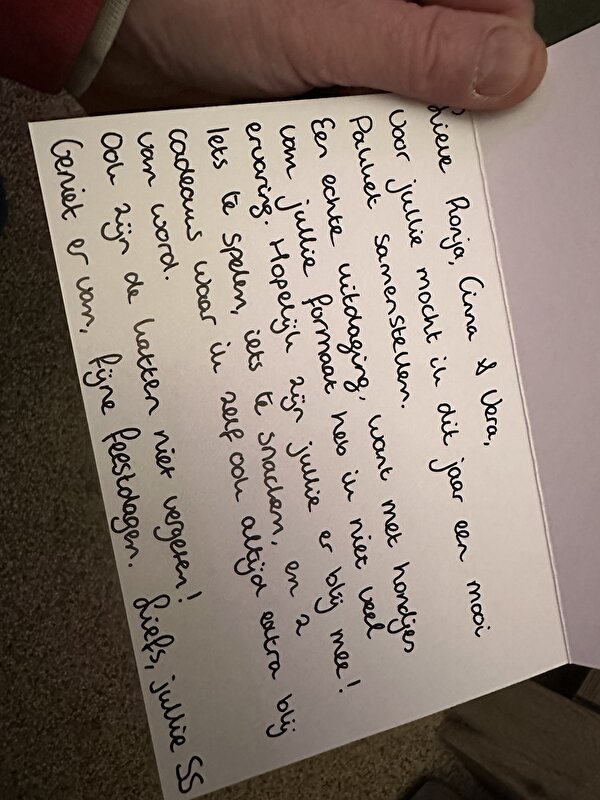 Lieve Ronja, Cinna & Vera,
Voor jullie mocht ik dit jaar een mooi
Pakket samenstellen.
Een echte uitdaging, want met hondjes
van jullie formaat heb ik niet veel
ervaring. Hopelijk zijn jullie er blij mee!
Iets te spelen, iets te snacken, en 2
cadeaus waar ik zelf ook altijd extra blij
van word.
Ook zijn de katten niet vergeten!
Geniet er van, fijne feestdagen.
Liefs, jullie SS